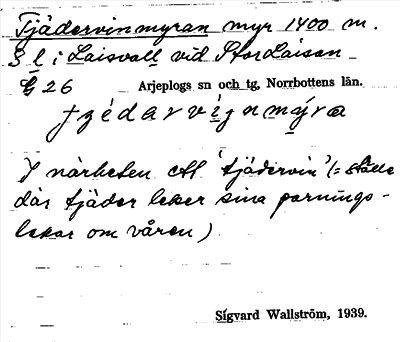 Tjädervinmyran myr 1400 m.
S l i Laisvall vid Storlaisan
G 26 Arjeplogs sn och tg, Norrbottens län.
I närheten ett 'tjädervin' (= ställe
där tjäder leker sina parnings-
lekar om våren)
Sigvard Wallström, 1939.